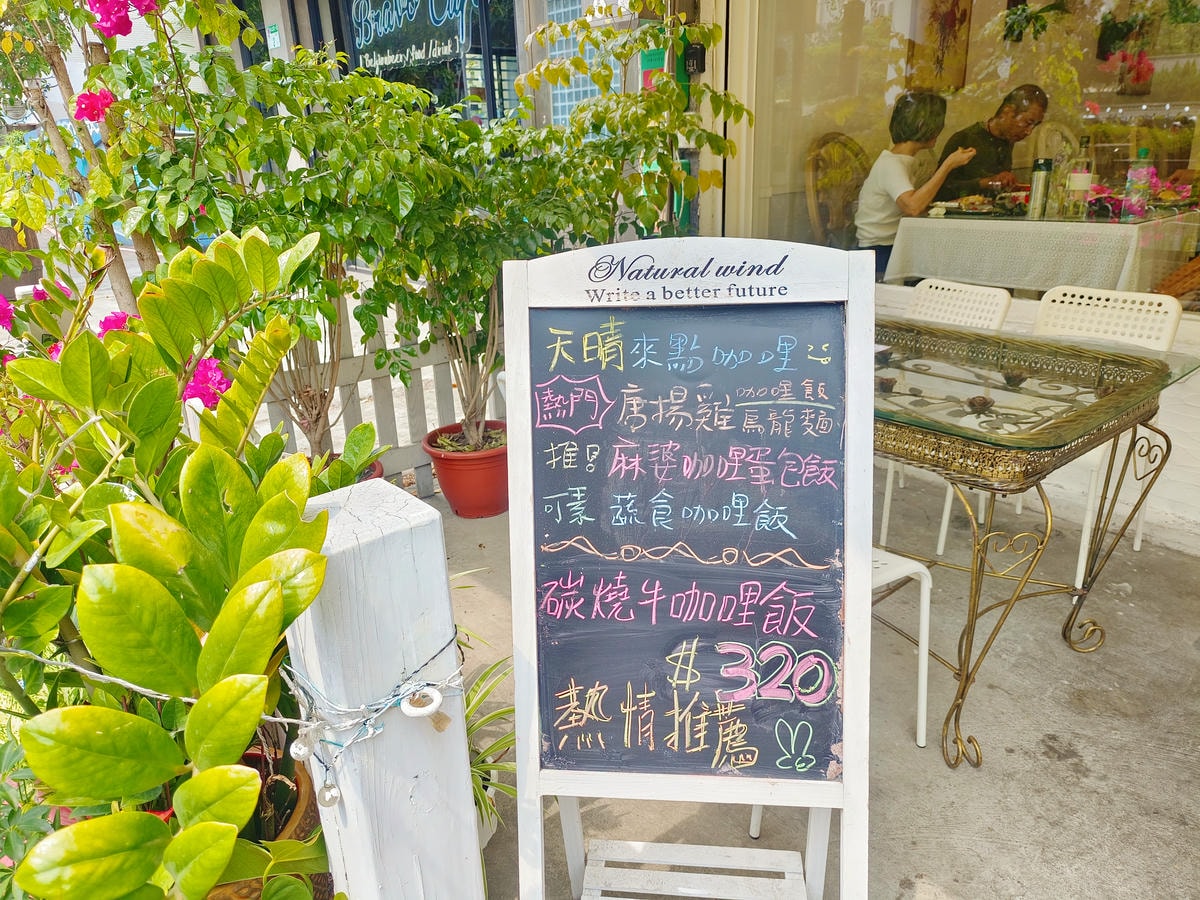 Bravo Cafe
Belgian beer / food / drink
Natural wind
Write a better future
天晴來點咖哩
熱門 唐揚雞 咖哩飯
烏龍麵
推! 麻婆咖哩蛋包飯
可素 蔬食咖哩飯
碳燒牛咖哩飯
$320
熱情推薦